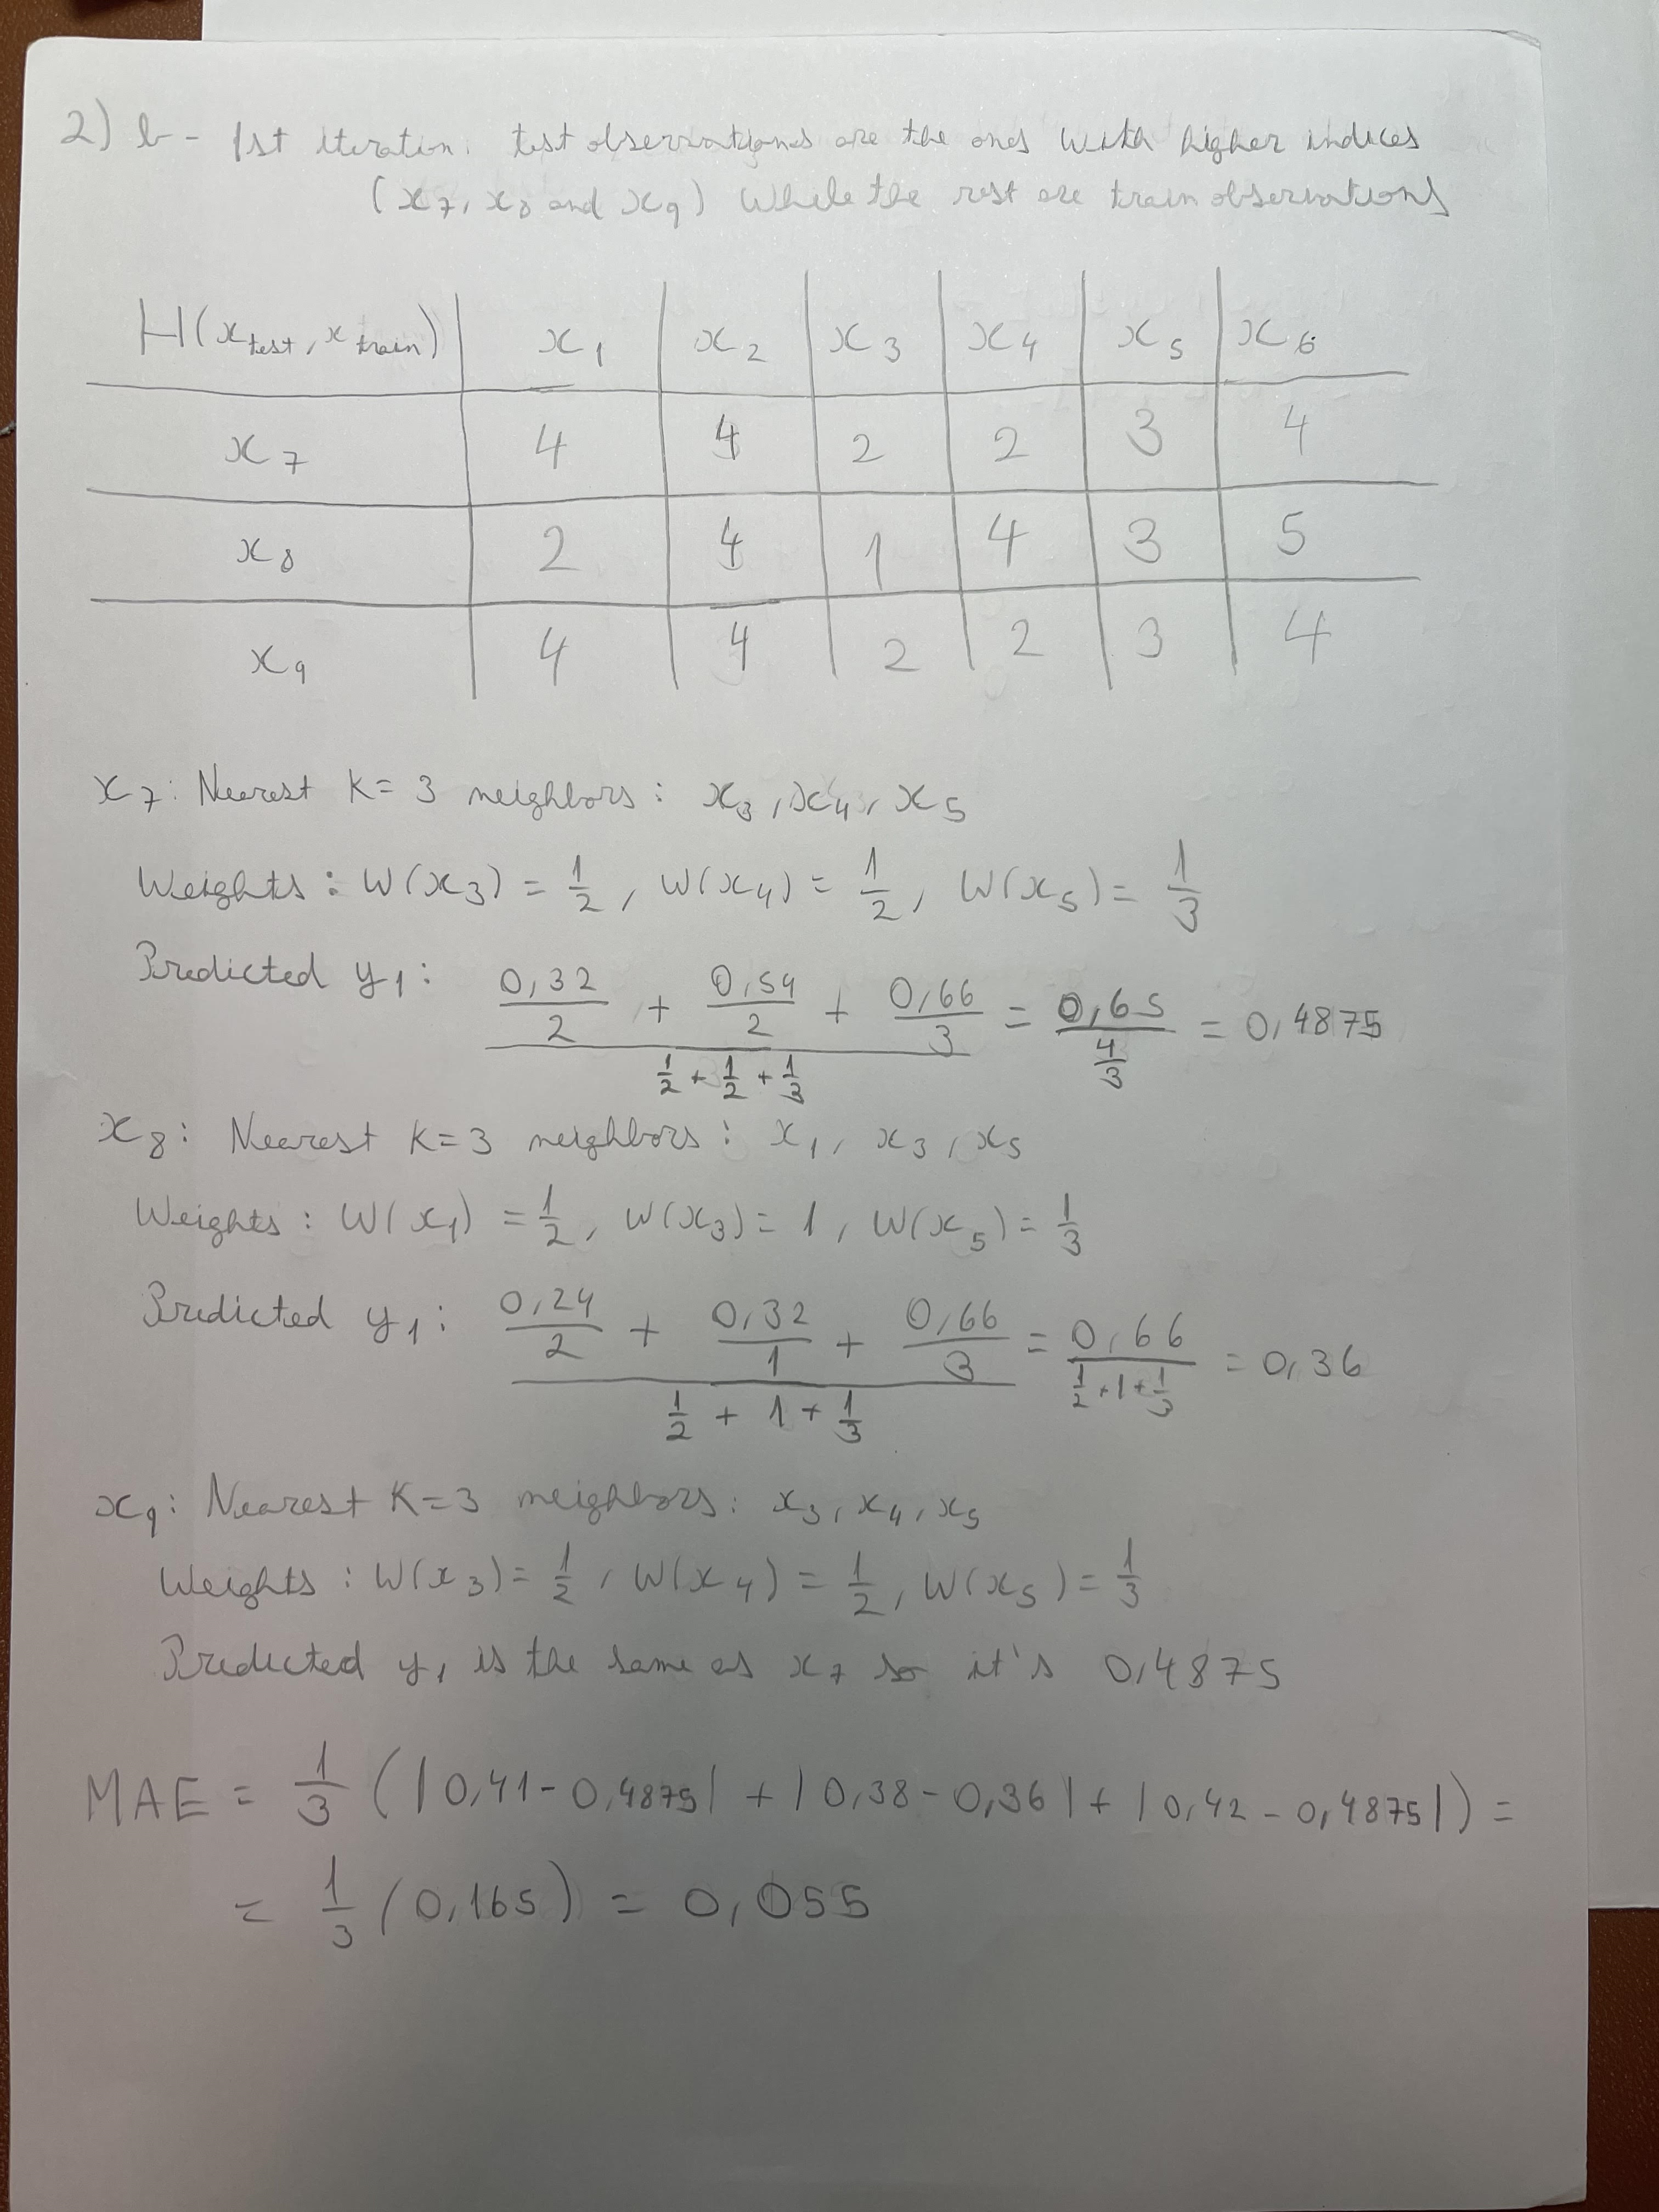 2) b - 1st iteration: test observations are the ones with higher indices
(x₇, x₈ and x₉) while the rest are train observations
H(x_test, x_train) | x₁ | x₂ | x₃ | x₄ | x₅ | x₆
x₇ | 4 | 4 | 2 | 2 | 3 | 4
x₈ | 2 | 4 | 1 | 4 | 3 | 5
x₉ | 4 | 4 | 2 | 2 | 3 | 4
x₇: Nearest K = 3 neighbors: x₃, x₄, x₅
Weights: W(x₃) = 1/2, W(x₄) = 1/2, W(x₅) = 1/3
Predicted y₁: (0,32/2 + 0,54/2 + 0,66/3) / (1/2 + 1/2 + 1/3) = 0,65 / (4/3) = 0,4875
x₈: Nearest K=3 neighbors: x₁, x₃, x₅
Weights: W(x₁) = 1/2, W(x₃) = 1, W(x₅) = 1/3
Predicted y₁: (0,24/2 + 0,32/1 + 0,66/3) / (1/2 + 1 + 1/3) = 0,66 / (1/2 + 1 + 1/3) = 0,36
x₉: Nearest K=3 neighbors: x₃, x₄, x₅
Weights: W(x₃) = 1/2, W(x₄) = 1/2, W(x₅) = 1/3
Predicted y₁ is the same as x₇ so it's 0,4875
MAE = 1/3 (|0,41 - 0,4875| + |0,38 - 0,36| + |0,42 - 0,4875|) =
= 1/3 (0,165) = 0,055